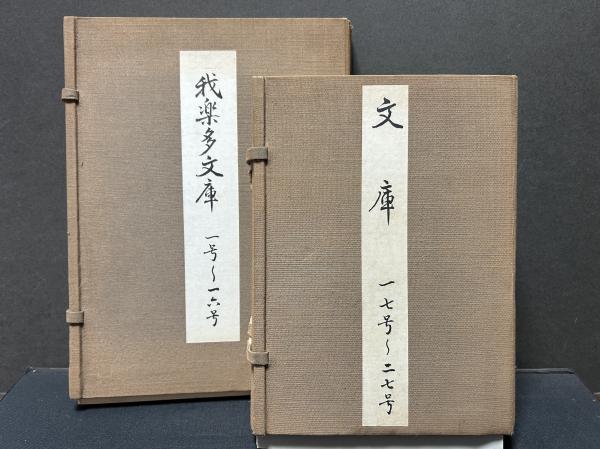 我楽多文庫
一号〜一六号
文庫
一七号〜二七号